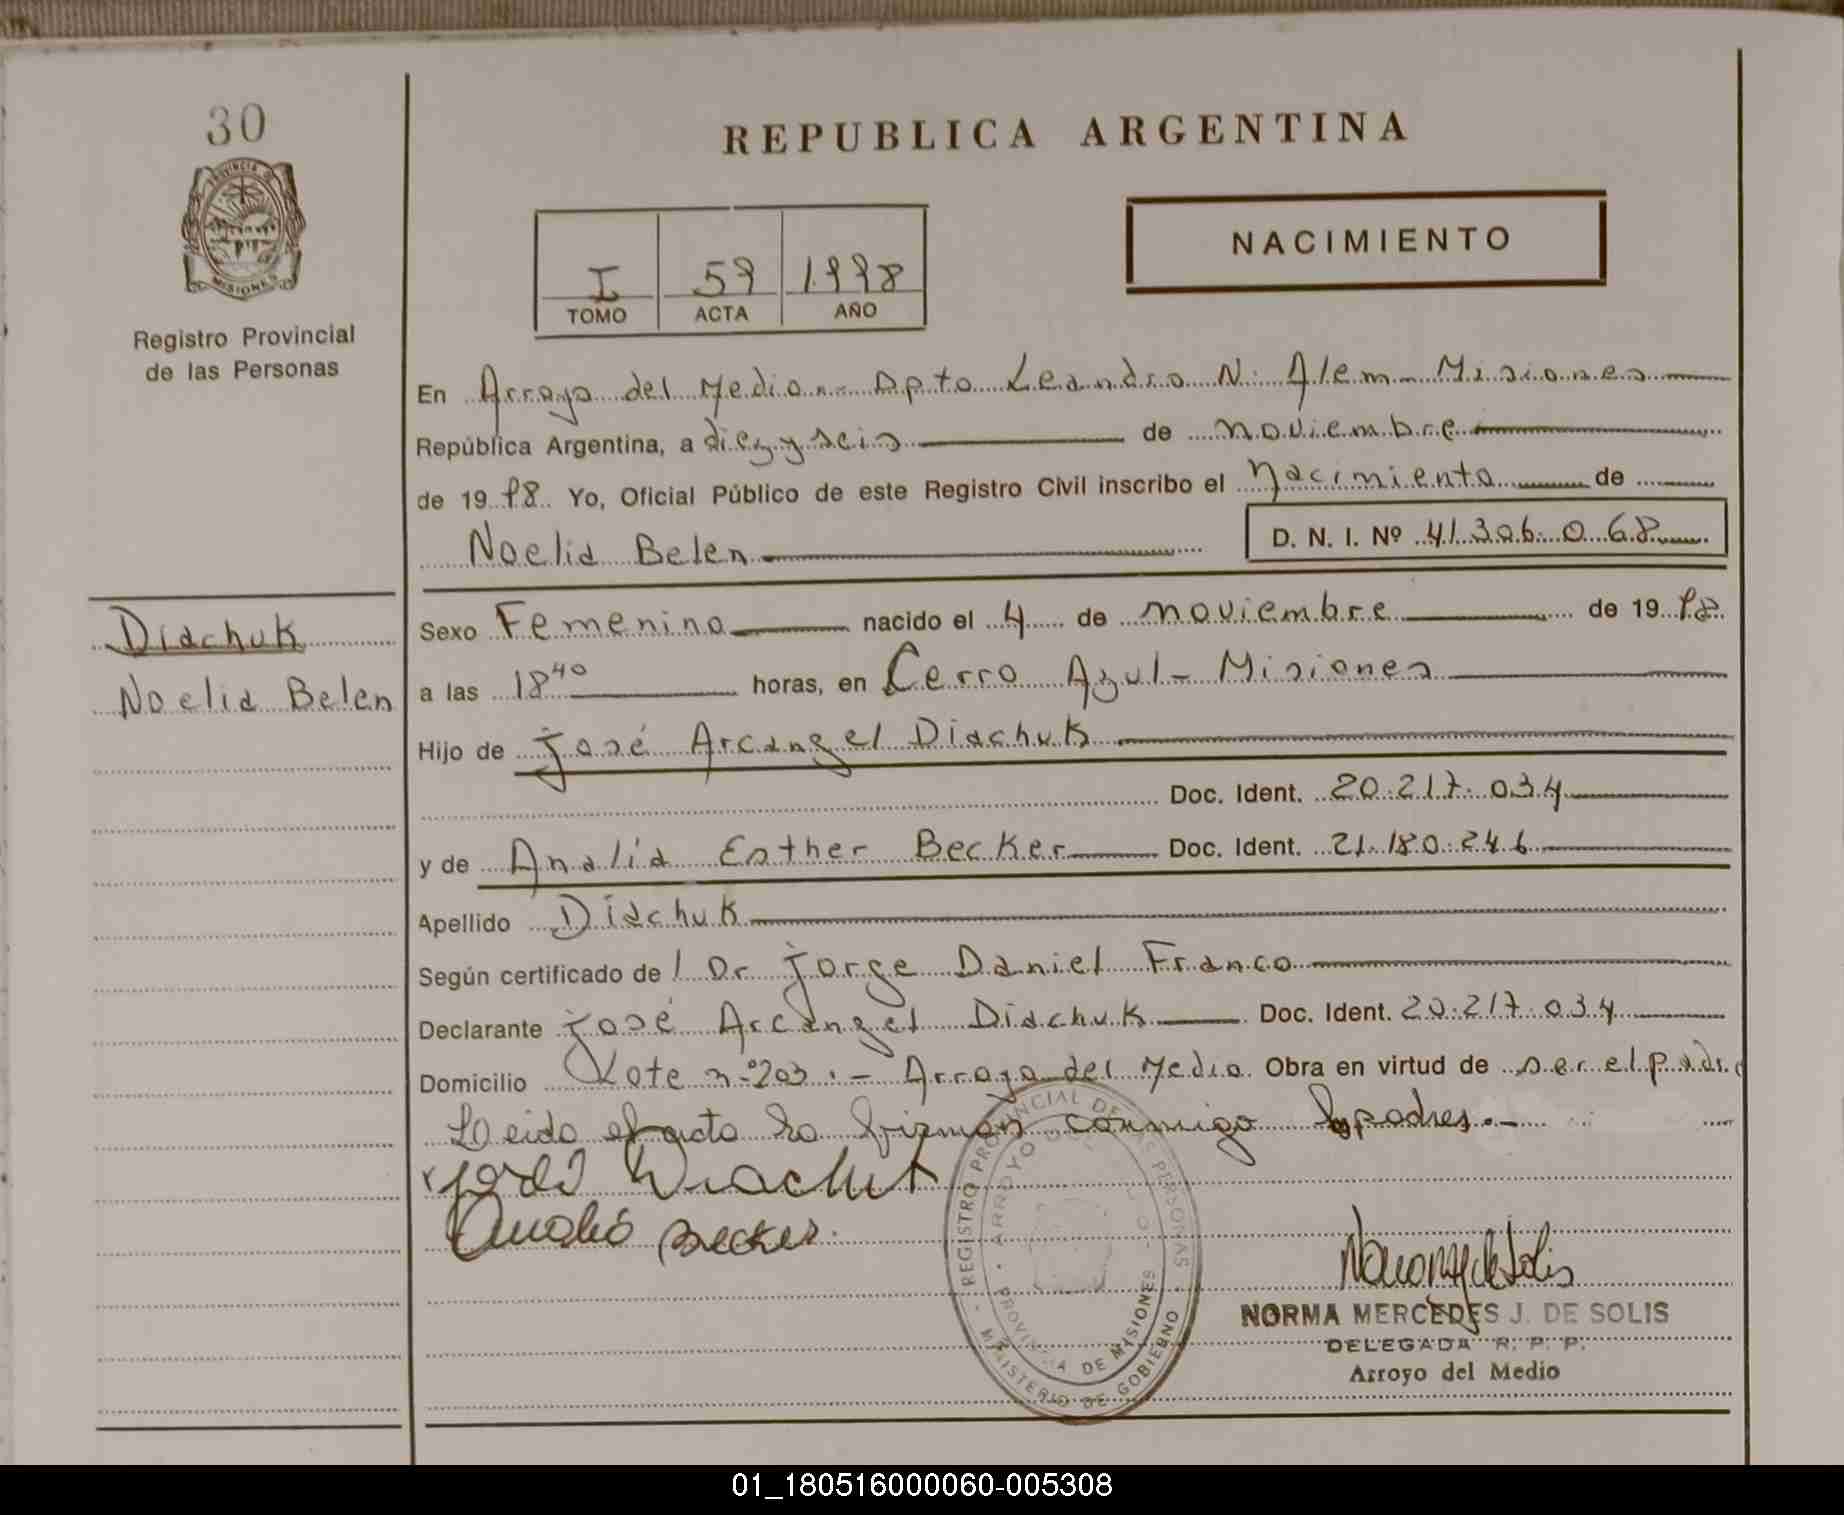 30
PROVINCIA DE
MISIONES
Registro Provincial
de las Personas
Diachuk
Noelia Belen
REPUBLICA ARGENTINA
I 59 1998
TOMO ACTA AÑO
NACIMIENTO
En Arroyo del Medio.- Dpto Leandro N. Alem - Misiones
República Argentina, a diez y seis de noviembre
de 1998. Yo, Oficial Público de este Registro Civil inscribo el Nacimiento de
Noelia Belen D. N. I. Nº 41.306.068
Sexo Femenino nacido el 4 de noviembre de 1998.
a las 18 40 horas, en Cerro Azul - Misiones
Hijo de José Arcangel Diachuk
Doc. Ident. 20.217.034
y de Analia Esther Becker Doc. Ident. 21.180.246
Apellido Diachuk
Según certificado del Dr Jorge Daniel Franco
Declarante José Arcangel Diachuk Doc. Ident. 20.217.034
Domicilio Lote nº 203.- Arroyo del Medio Obra en virtud de ser el padre
Leido el acta la firman conmigo los padres.-
José Diachuk
Analia Becker.
REGISTRO PROVINCIAL DE LAS PERSONAS
ARROYO
PROVINCIA DE MISIONES
MINISTERIO DE GOBIERNO
NORMA MERCEDES J. DE SOLIS
DELEGADA R. P. P.
Arroyo del Medio
01_180516000060-005308